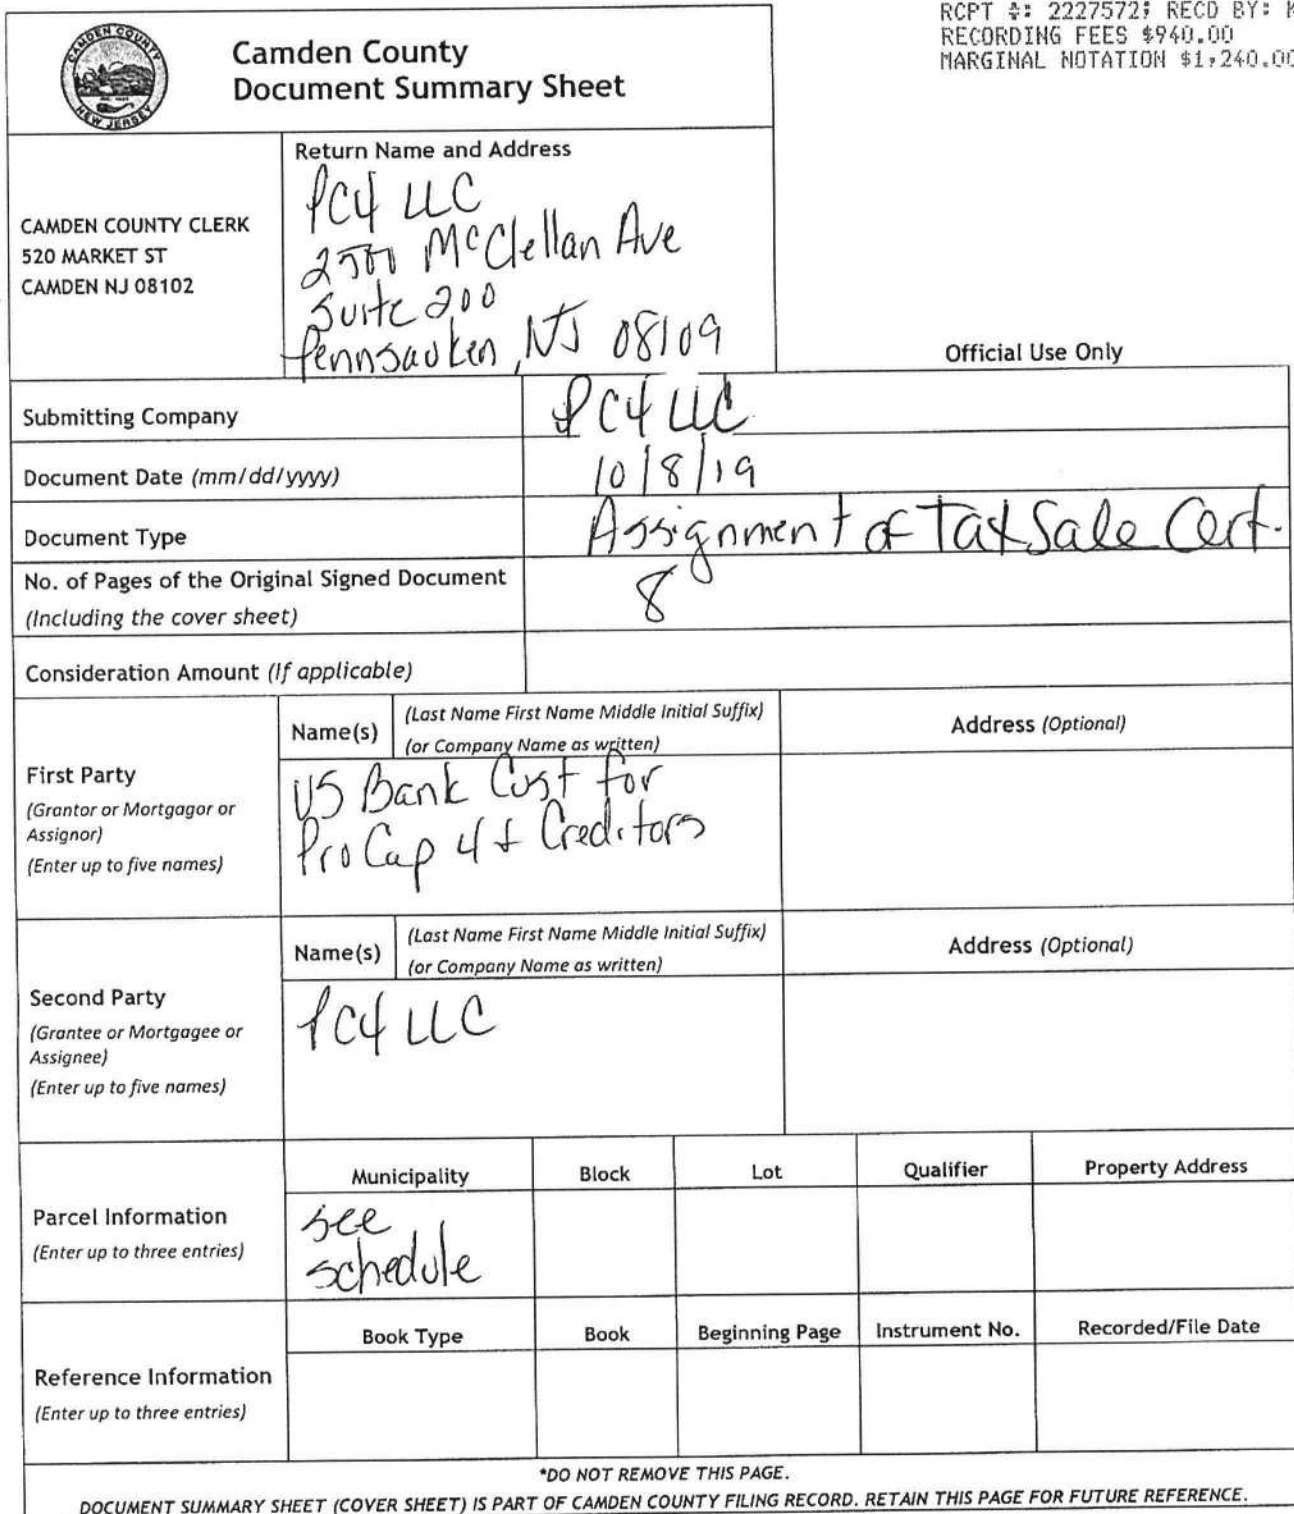 RCPT #: 2227572; RECD BY:
RECORDING FEES $940.00
MARGINAL NOTATION $1,240.00
CAMDEN COUNTY
NEW JERSEY
Camden County
Document Summary Sheet
CAMDEN COUNTY CLERK
520 MARKET ST
CAMDEN NJ 08102
Return Name and Address
PC4 LLC
2500 McClellan Ave
Suite 200
Pennsauken, NJ 08109
Official Use Only
Submitting Company
PC4 LLC
Document Date (mm/dd/yyyy)
10/8/19
Document Type
Assignment of Tax Sale Cert.
No. of Pages of the Original Signed Document
(Including the cover sheet)
8
Consideration Amount (If applicable)
First Party
(Grantor or Mortgagor or
Assignor)
(Enter up to five names)
Name(s)
(Last Name First Name Middle Initial Suffix)
(or Company Name as written)
Address (Optional)
US Bank Cust for
Pro Cap 4 + Creditors
Second Party
(Grantee or Mortgagee or
Assignee)
(Enter up to five names)
Name(s)
(Last Name First Name Middle Initial Suffix)
(or Company Name as written)
Address (Optional)
PC4 LLC
Parcel Information
(Enter up to three entries)
Municipality Block Lot Qualifier Property Address
see
schedule
Reference Information
(Enter up to three entries)
Book Type Book Beginning Page Instrument No. Recorded/File Date
*DO NOT REMOVE THIS PAGE.
DOCUMENT SUMMARY SHEET (COVER SHEET) IS PART OF CAMDEN COUNTY FILING RECORD. RETAIN THIS PAGE FOR FUTURE REFERENCE.